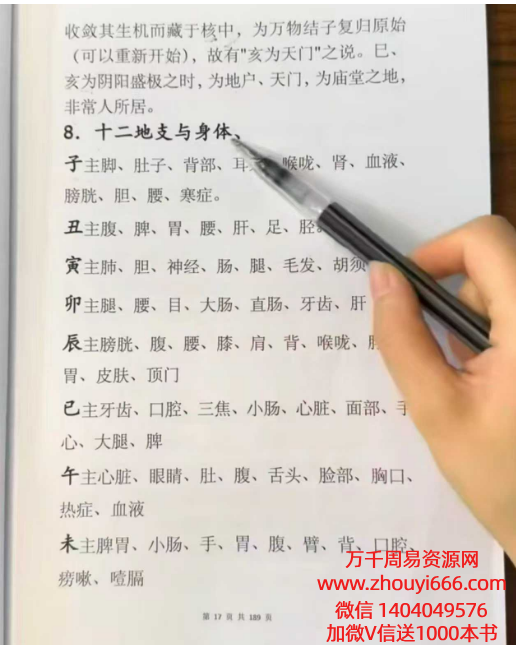 收敛其生机而藏于核中，为万物结子复归原始
（可以重新开始），故有"亥为天门"之说。巳、
亥为阴阳盛极之时，为地户、天门，为庙堂之地，
非常人所居。
8．十二地支与身体、
子主脚、肚子、背部、耳 喉咙、肾、血液、
膀胱、胆、腰、寒症。
丑主腹、脾、胃、腰、肝、足、胫。
寅主肺、胆、神经、肠、腿、毛发、胡须
卯主腿、腰、目、大肠、直肠、牙齿、肝
辰主膀胱、腹、腰、膝、肩、背、喉咙、
胃、皮肤、顶门
巳主牙齿、口腔、三焦、小肠、心脏、面部、手
心、大腿、脾
午主心脏、眼睛、肚、腹、舌头、脸部、胸口、
热症、血液
未主脾胃、小肠、手、胃、腹、臂、背、口腔、
痨嗽、噎膈
第 17 页 共 189 页
万千周易资源网
www.zhouyi666.com
微信 1404049576
加微V信送1000本书